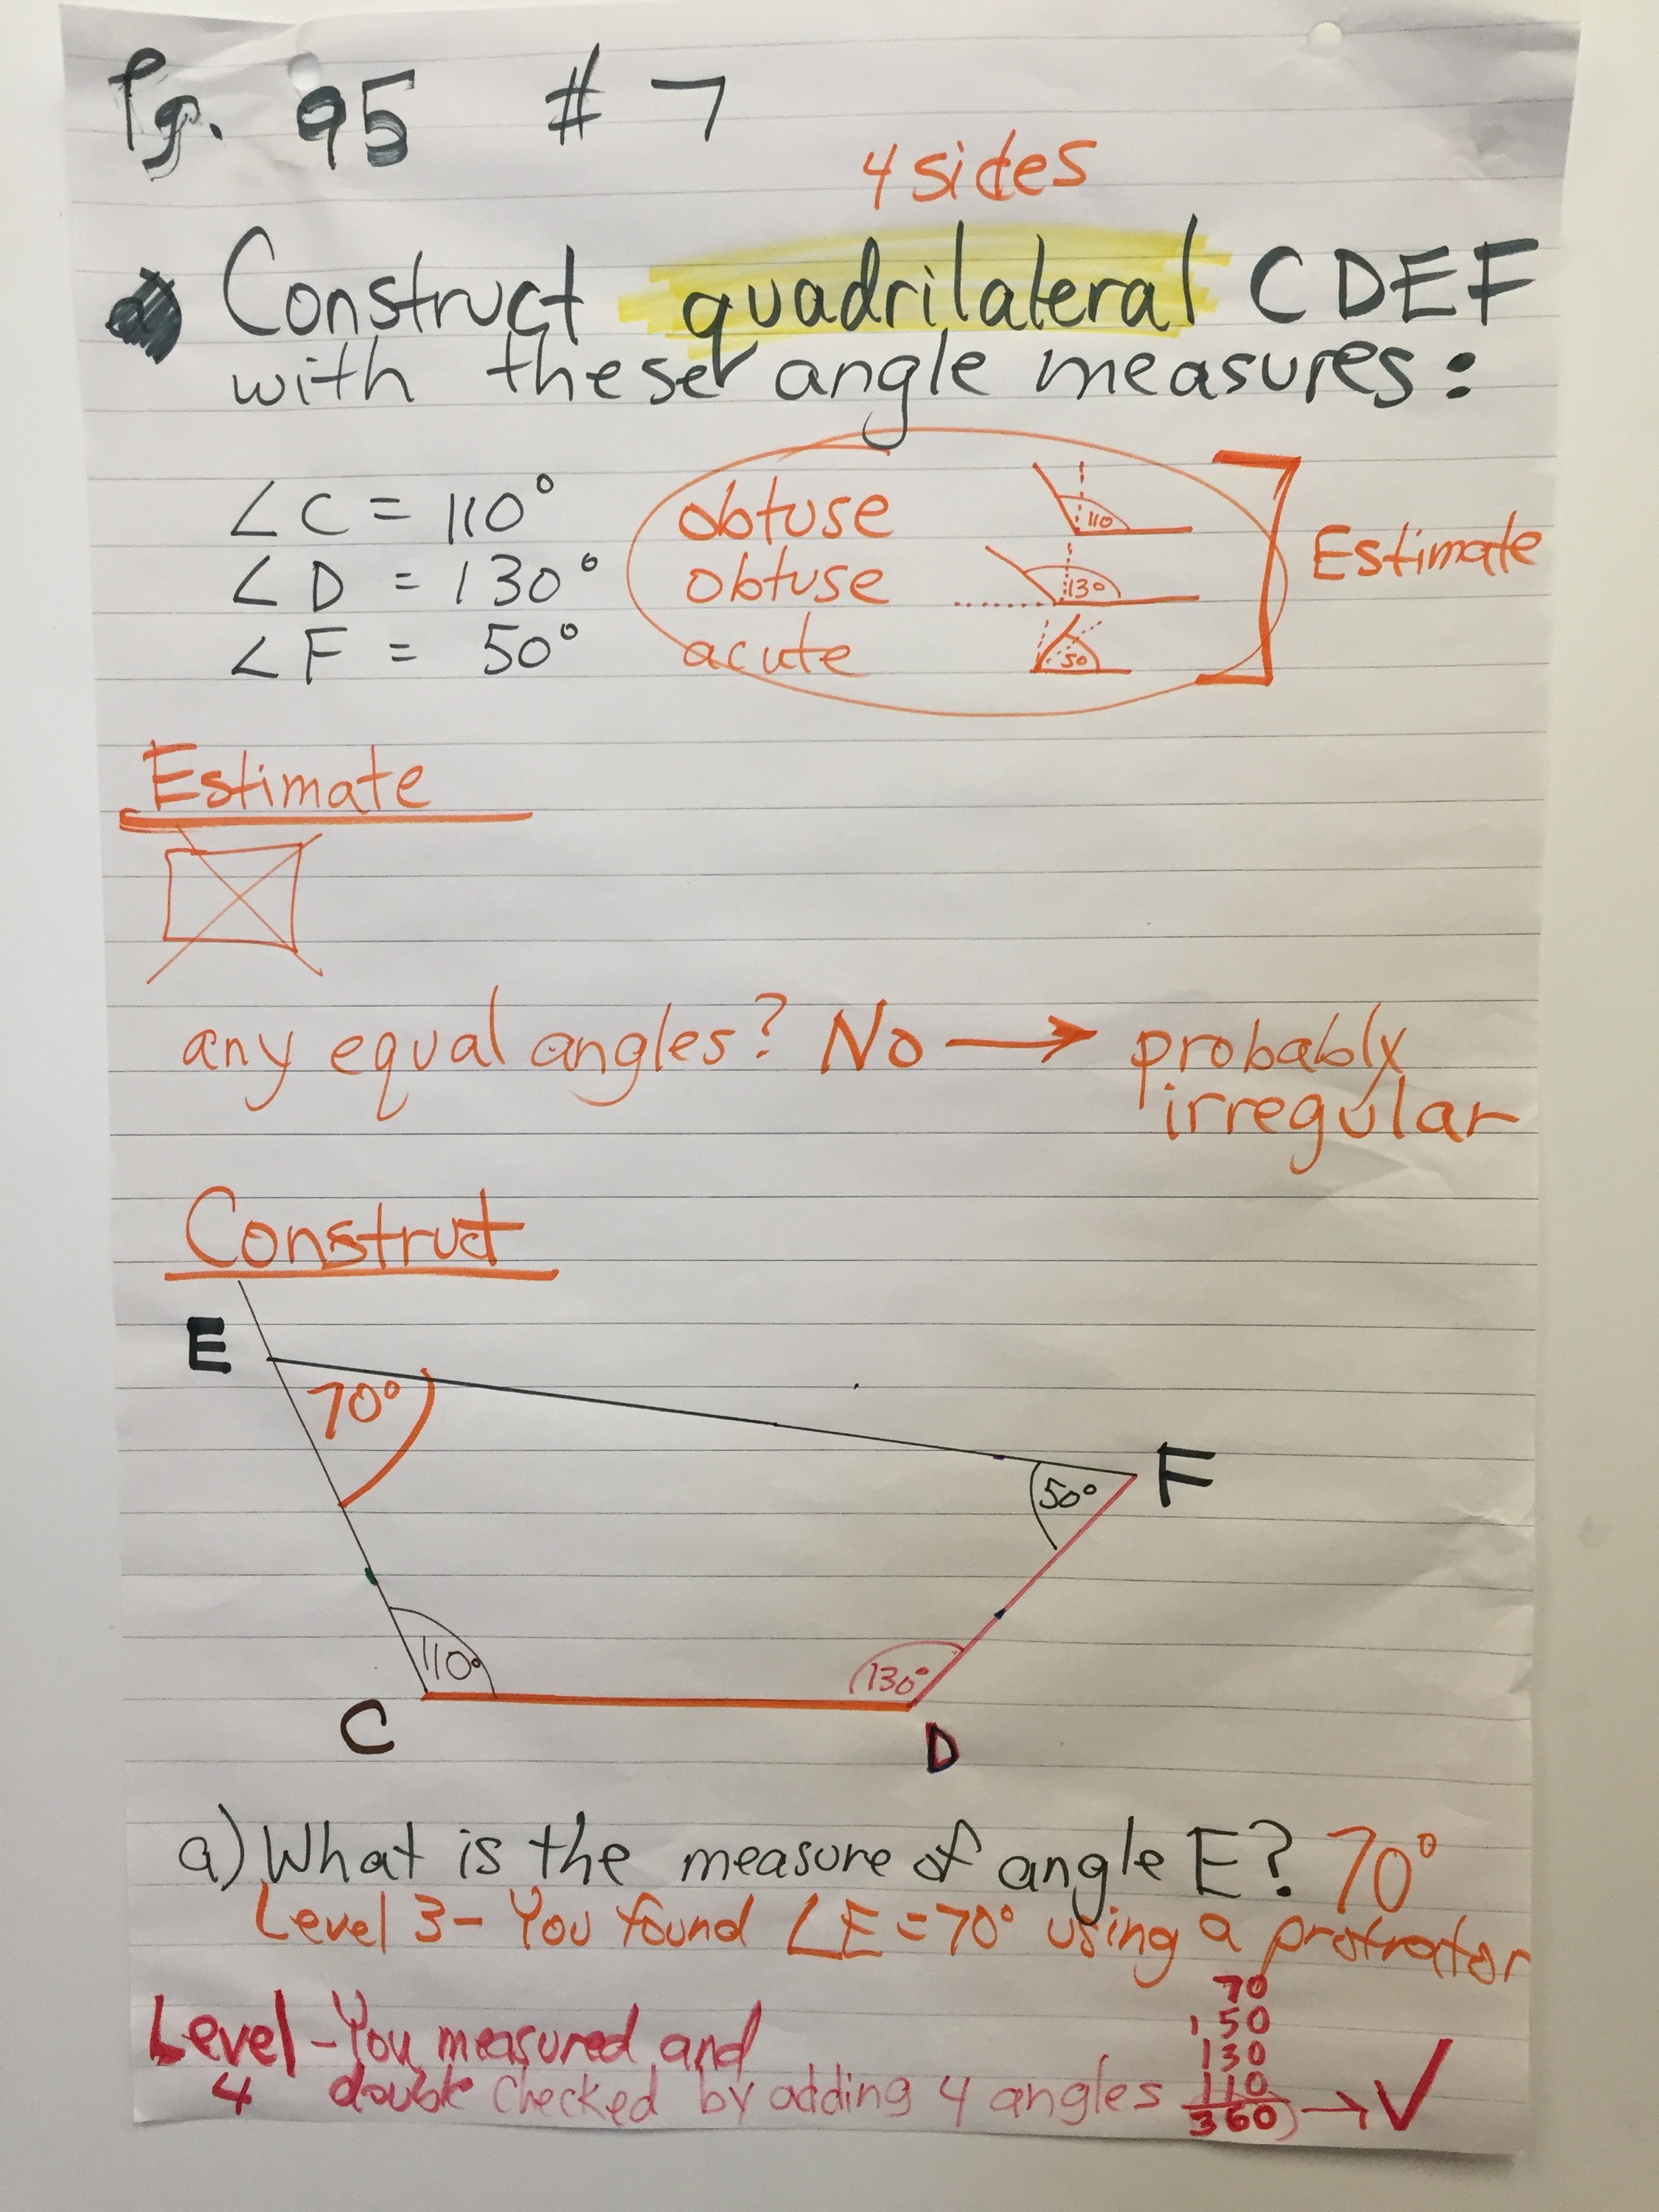 Pg. 95 # 7
4 sides
a) Construct quadrilateral CDEF
with these angle measures:
∠C = 110° obtuse 110
∠D = 130° obtuse 130
∠F = 50° acute 50
Estimate
Estimate
any equal angles? No → probably
irregular
Construct
E
70°
F
50°
110°
130°
C
D
a) What is the measure of angle E? 70°
Level 3 - You found ∠E = 70° using a protractor
Level - You measured and
4 double checked by adding 4 angles
70
50
130
110
360 → ✓